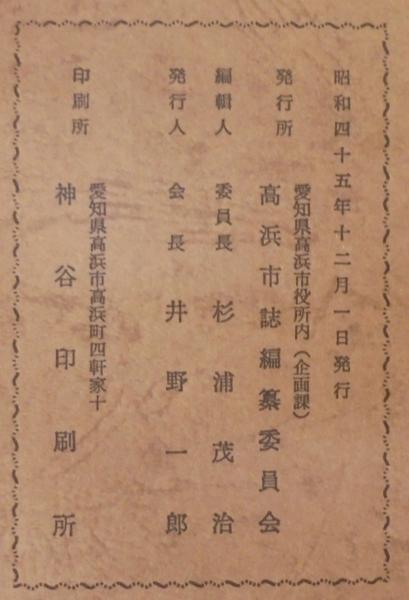 昭和四十五年十二月一日発行
愛知県高浜市役所内（企画課）
発行所 高浜市誌編纂委員会
編輯人 委員長 杉浦茂治
発行人 会長 井野一郎
愛知県高浜市高浜町四軒家十
印刷所 神谷印刷所